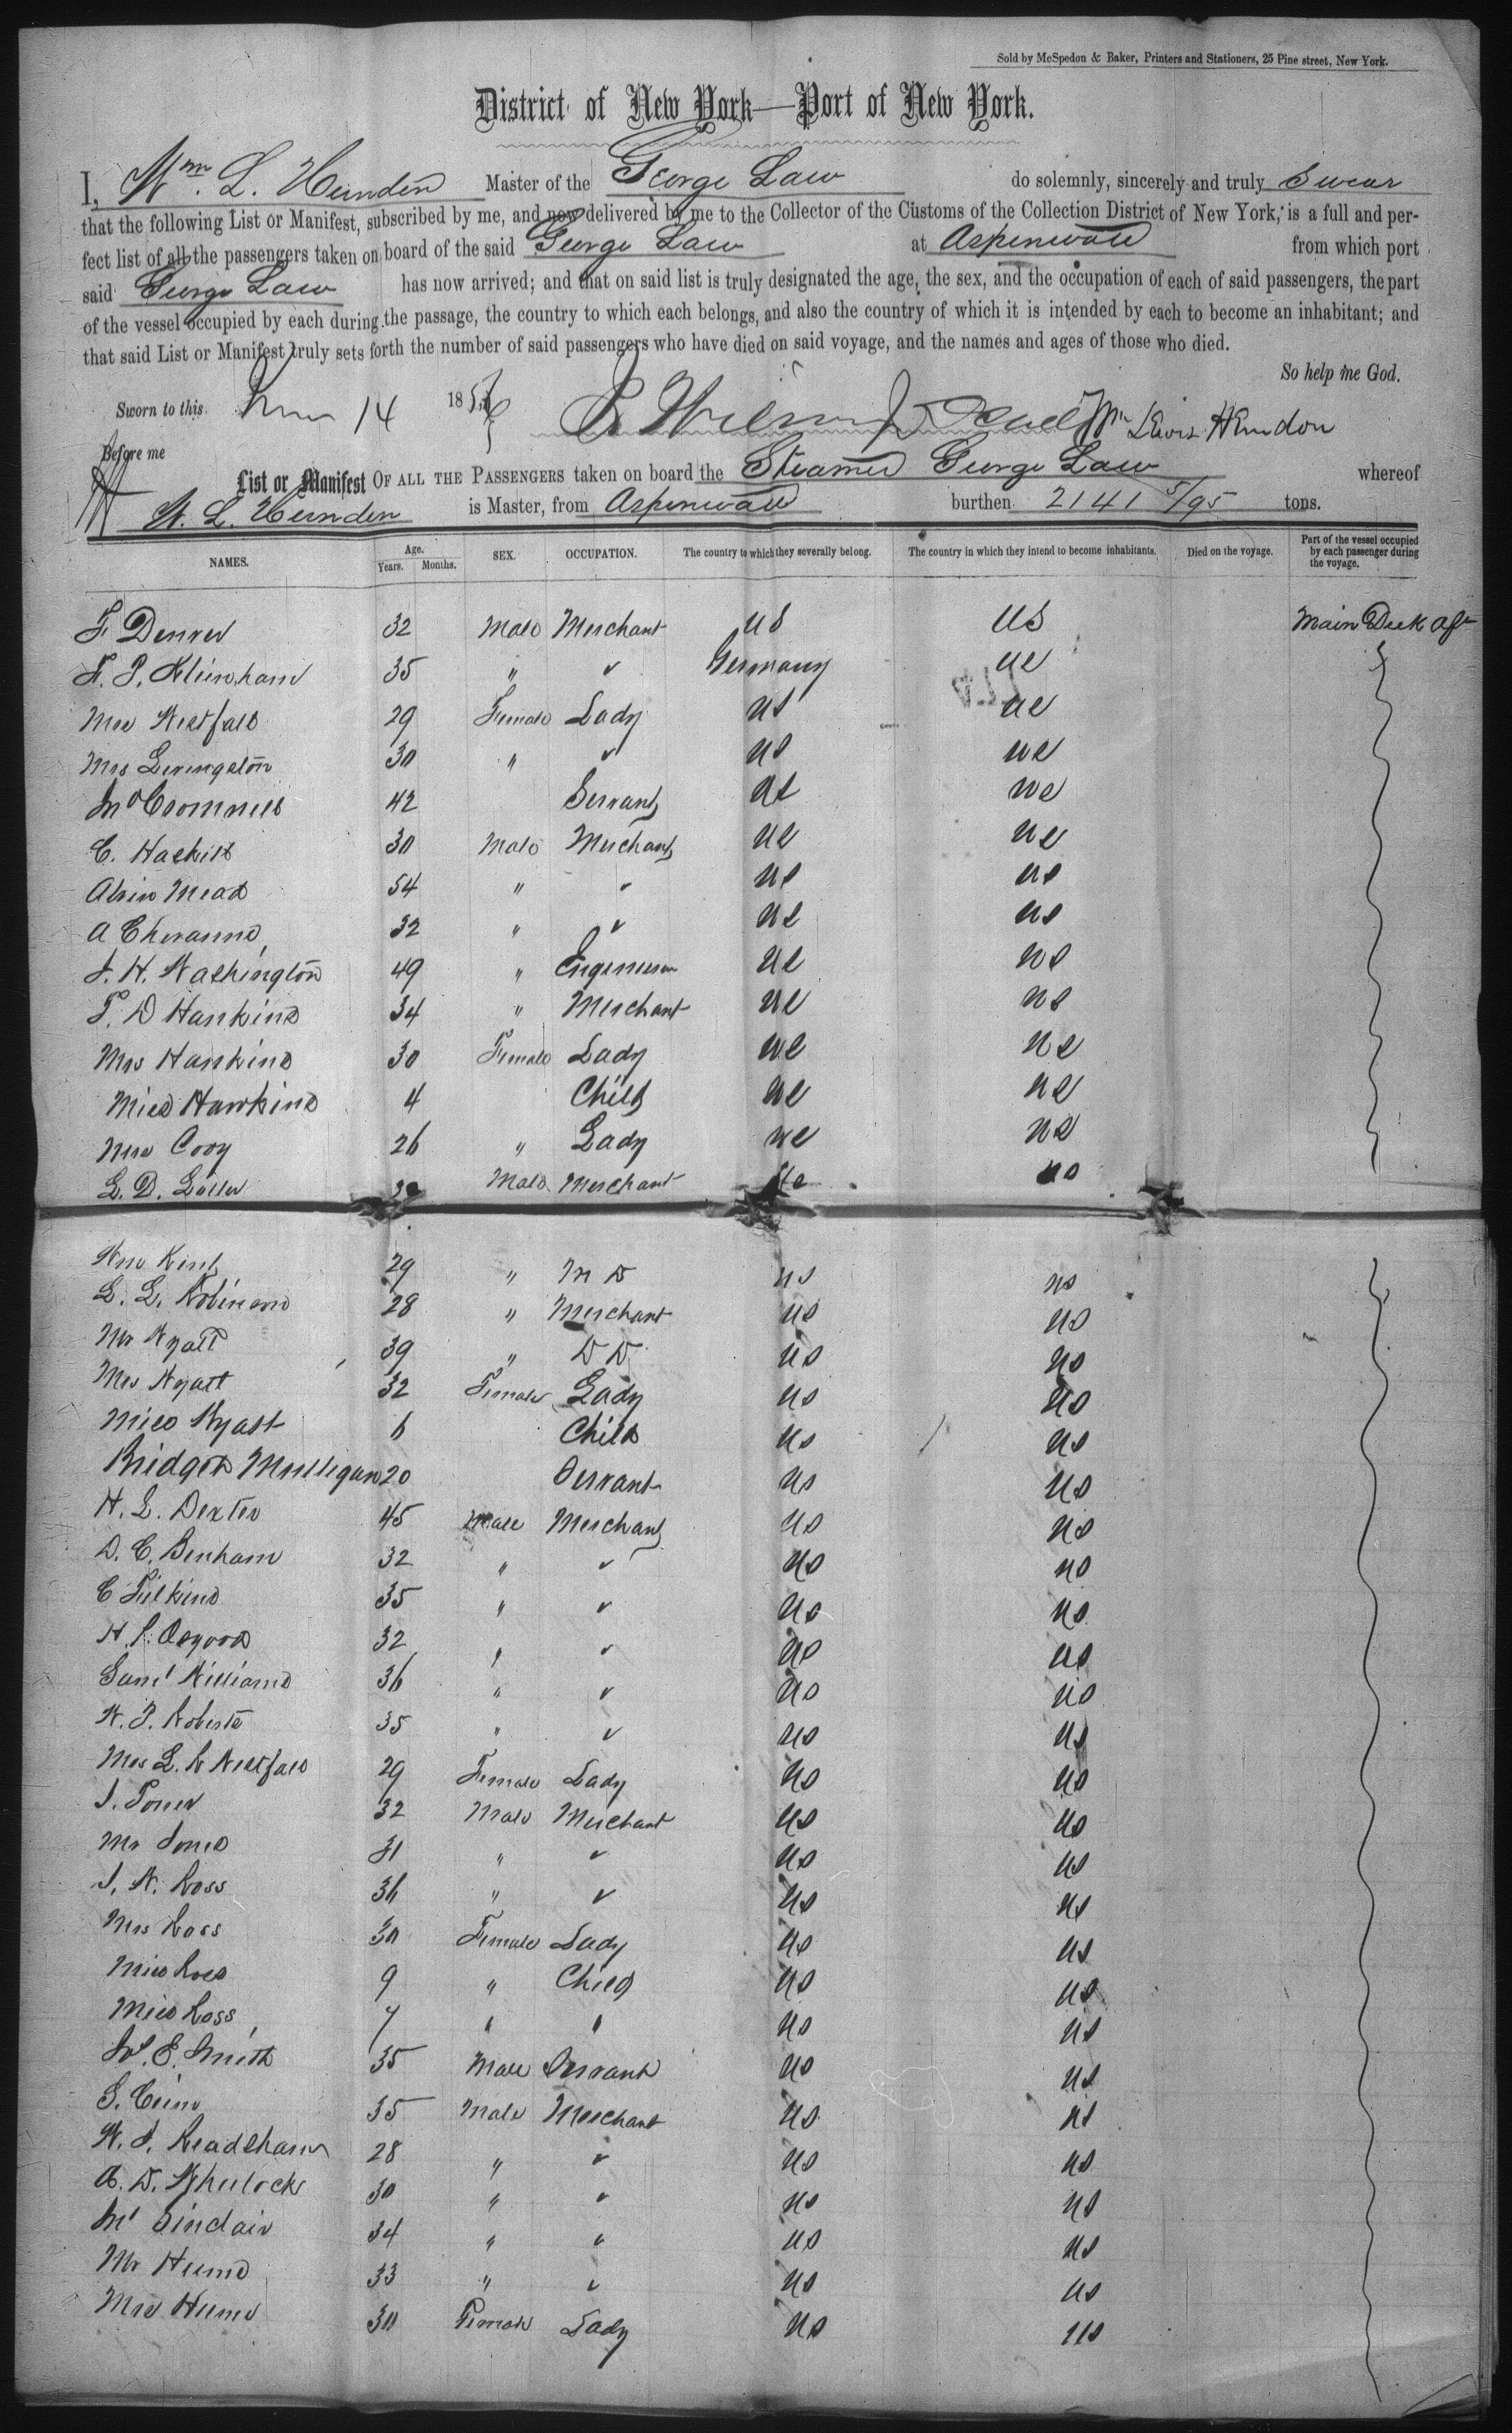 Sold by McSpedon & Baker, Printers and Stationers, 25 Pine street, New York.
District of New York—Port of New York.
I, Wm. L. Herndon Master of the George Law do solemnly, sincerely and truly Swear
that the following List or Manifest, subscribed by me, and now delivered by me to the Collector of the Customs of the Collection District of New York, is a full and per-
fect list of all the passengers taken on board of the said George Law at Aspinwall from which port
said George Law has now arrived; and that on said list is truly designated the age, the sex, and the occupation of each of said passengers, the part
of the vessel occupied by each during the passage, the country to which each belongs, and also the country of which it is intended by each to become an inhabitant; and
that said List or Manifest truly sets forth the number of said passengers who have died on said voyage, and the names and ages of those who died.
So help me God.
Sworn to this 14 185 Wm Lewis Herndon
Before me
List or Manifest OF ALL THE PASSENGERS taken on board the Steamer George Law whereof
W. L. Herndon is Master, from Aspinwall burthen 2141 5/95 tons.
NAMES. Age. Years. Months. SEX. OCCUPATION. The country to which they severally belong. The country in which they intend to become inhabitants. Died on the voyage. Part of the vessel occupied by each passenger during the voyage.
F Denver 32 Male Merchant US US Main Deck aft
35 " " Germany US
Mrs Westfall 29 Female Lady US US
Mrs Livingston 30 " " US US
42 Servant US US
C. Haskill 30 Male Merchant US US
Alvin Mead 54 " " US US
A 32 " " US US
J. H. Washington 49 " Engineer US US
T. D Hankins 34 " Merchant US US
Mrs Hankins 30 Female Lady US US
Miss Hawkins 4 Child US US
Mrs Cory 26 " Lady US US
L. D. Male Merchant US US
Wm Kent 29 " M D US US
L. L. Robinson 28 " Merchant US US
Mr Wyatt 39 " D D US US
Mrs Wyatt 32 Female Lady US US
Miss Wyatt 6 Child US US
Bridget Mulligan 20 Servant US US
H. L. Dexter 45 Male Merchant US US
D. C. Benham 32 " " US US
C Filkins 35 " " US US
H. P. Osgood 32 " " US US
Saml Williams 36 " " US US
W. P. Roberts 35 " " US US
Mrs L. R Westfall 29 Female Lady US US
J. 32 Male Merchant US US
Mr Jones 31 " " US US
J. W. Ross 36 " " US US
Mrs Ross 30 Female Lady US US
Miss Ross 9 " Child US US
Miss Ross 7 " " US US
W. E. Smith 35 Male Servant US US
S. 35 Male Merchant US US
W. J. Headsham 28 " " US US
A. D. Wheelock 30 " " US US
Mr Sinclair 34 " " US US
Mr Hume 33 " " US US
Mrs Hume 30 Female Lady US US